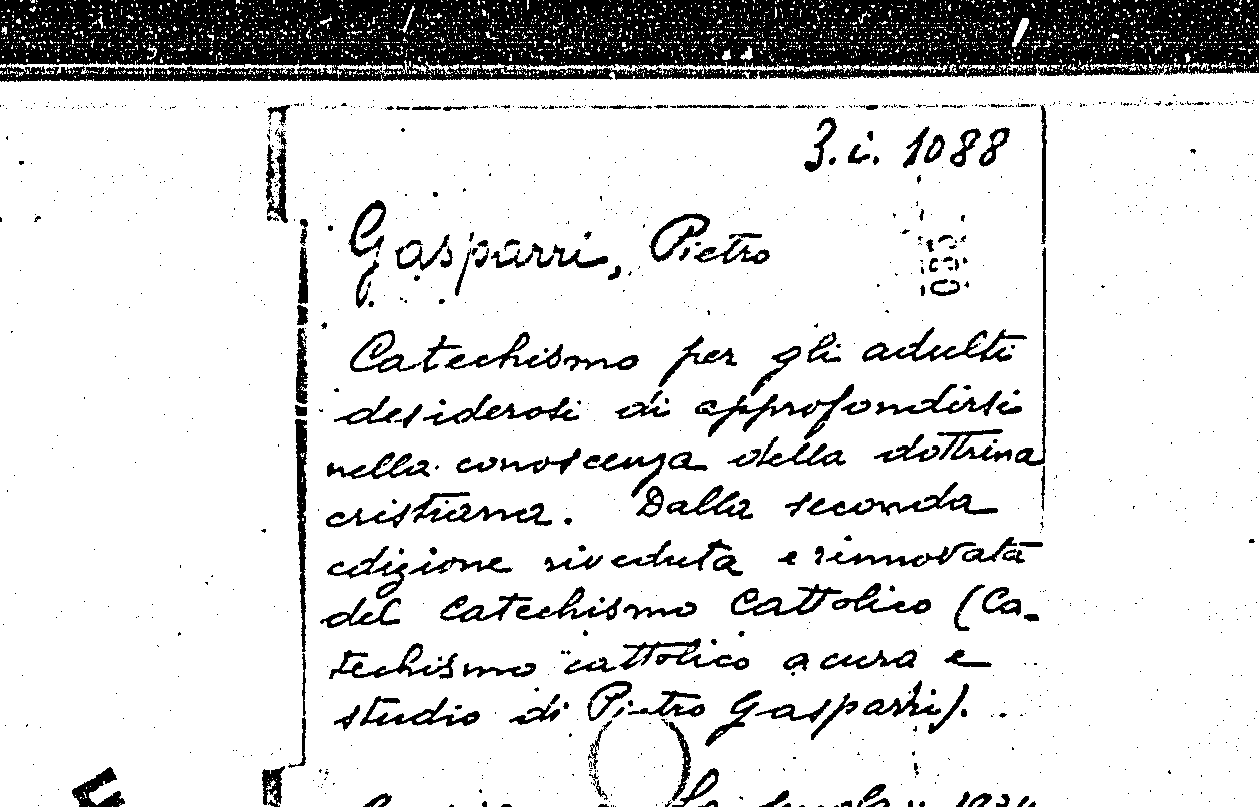 3.i. 1088
Gasparri, Pietro
Catechismo per gli adulti
desiderosi di approfondirsi
nella conoscenza della dottrina
cristiana. Dalla seconda
edizione riveduta e rinnovata
del Catechismo Cattolico (Ca-
techismo cattolico a cura e
studio di Pietro Gasparri).